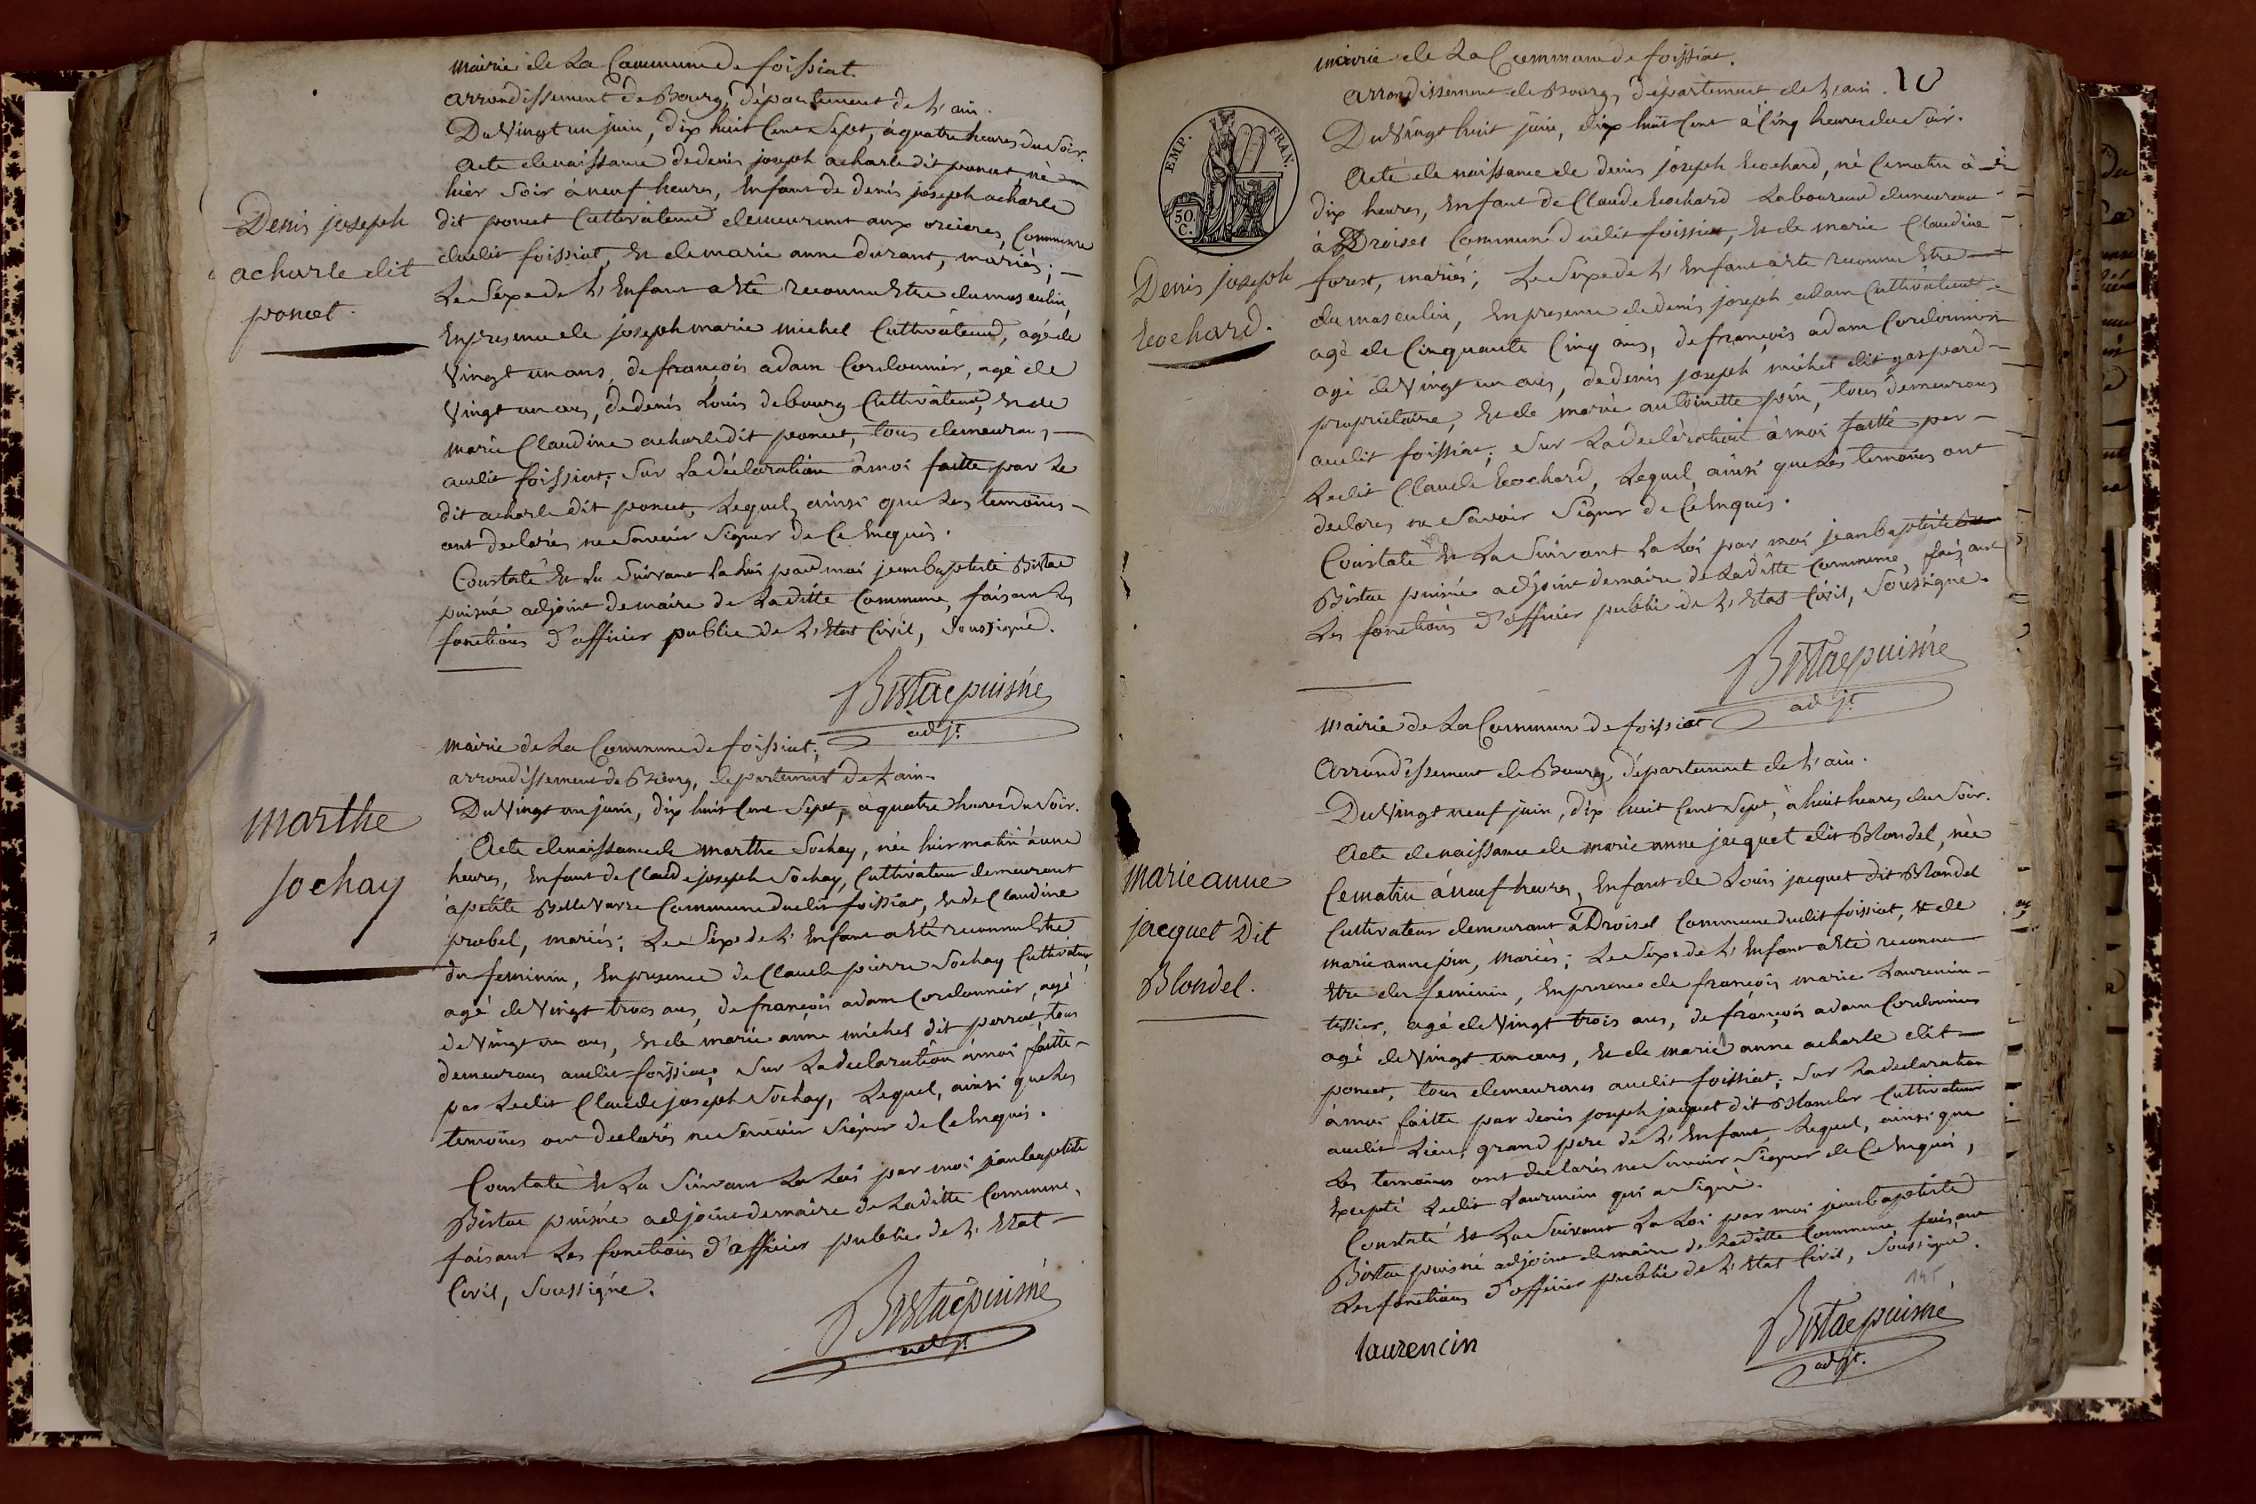 mairie de La Commune de foissiat.
arrondissement de Bourg, département de L'ain.
Du Vingt un juin, dix huit Cent Sept, à quatre heures du Soir.
Acte de naissance de denis joseph acharle dit poncet né
hier Soir à neuf heures, Enfant de denis joseph acharle
dit poncet Cultivateur demeurant aux orcieres, Commune
dudit foissiat, Et de marie anne durant, mariés; —
Le Sexe de L'Enfant a Eté reconnu Etre du masculin,
En presence de joseph marie michel Cultivateur, agé de
Vingt un ans, de françois adam Cordonnier, agé de
Vingt un ans, de denis Louis debourg Cultivateur, Et de
marie Claudine acharle dit poncet, tous demeurans —
audit foissiat; Sur La déclaration à moi faitte par Le
dit acharle dit poncet, Lequel, ainsi que Les temoins —
ont declarés ne Savoir Signer de Ce Enquis.
Constaté Et Lu Suivant La Loi par moi jean baptiste Bistac
puisné adjoint de maire de Laditte Commune, faisant Les
fonctions d'officier public de L'Etat Civil, Soussigné.
Bistac puisné
adjt.
Denis joseph
acharle dit
poncet.
mairie de La Commune de foissiat;
arrondissement de Bourg, departement de L'ain.
Du Vingt un juin, dix huit Cent Sept, à quatre heures du Soir.
Acte de naissance de marthe Sochay, née hier matin à une
heures, Enfant de Claude joseph Sochay, Cultivateur demeurant
à petite Belle Varre Commune dudit foissiat, Et de Claudine
probel, mariés; Le Sexe de L'Enfant a Eté reconnu Etre
du feminin, En presence de Claude pierre Sochay Cultivateur,
agé de Vingt trois ans, de françois adam Cordonnier, agé
de Vingt un ans, Et de marie anne michel dit perrat, tous
demeurans audit foissiat; Sur La declaration à moi faitte —
par Ledit Claude joseph Sochay, Lequel, ainsi que Les
temoins ont declarés ne Savoir Signer de Ce Enquis.
Constaté Et Lu Suivant La Loi par moi jean baptiste
Bistac puisné adjoint de maire de Laditte Commune,
faisant Les fonctions d'officier public de L'Etat —
Civil, Soussigné.
Bistac puisné
adjt.
marthe
Sochay
mairie de La Commune de foissiat.
arrondissement de Bourg, département de L'ain.
10
EMP. FRAN.
50.
C.
Du Vingt huit juin, dix huit Cent à Cinq heures du Soir.
Acte de naissance de denis joseph Ecochard, né Ce matin à
dix heures, Enfant de Claude Ecochard Laboureur demeurant
à Droiset Commune dudit foissiat, Et de marie Claudine
forest, mariés; Le Sexe de L'Enfant a Eté reconnu Etre
du masculin, En presence de denis joseph adam Cultivateur
agé de Cinquante Cinq ans, de françois adam Cordonnier
agé de Vingt un ans, de denis joseph michel dit gaspard —
propriétaire, Et de marie antoinette pin, tous demeurans
audit foissiat; Sur La déclaration à moi faitte par —
Ledit Claude Ecochard, Lequel, ainsi que Les temoins ont
declarés ne Savoir Signer de Ce Enquis.
Constaté Et Lu Suivant La Loi par moi jean baptiste
Bistac puisné adjoint de maire de Laditte Commune, faisant
Les fonctions d'officier public de L'Etat Civil, Soussigné.
Bistac puisné
adjt.
Denis joseph
Ecochard.
mairie de La Commune de foissiat
Arrondissement de Bourg, département de L'ain.
Du Vingt neuf juin, dix huit Cent Sept, à huit heures du Soir.
Acte de naissance de marie anne jacquet dit Blondel, née
Ce matin à neuf heures, Enfant de Louis jacquet dit Blondel
Cultivateur demeurant à Droiset Commune dudit foissiat, Et de
marie anne pin, mariés; Le Sexe de L'Enfant a Eté reconnu
Etre du feminin, En presence de françois marie Laurencin —
tissier, agé de Vingt trois ans, de françois adam Cordonnier
agé de Vingt un ans, Et de marie anne acharle dit —
poncet, tous demeurans audit foissiat; Sur La declaration
à moi faitte par denis joseph jacquet dit Blondel Cultivateur
audit Lieu, grand pere de L'Enfant, Lequel, ainsi que
Les temoins ont declarés ne Savoir Signer de Ce Enquis,
Excepté Ledit Laurencin qui a Signé.
Constaté Et Lu Suivant La Loi par moi jean baptiste
Bistac puisné adjoint de maire de Laditte Commune, faisant
Les fonctions d'officier public de L'Etat Civil, Soussigné.
145
laurencin
Bistac puisné
adjt.
marie anne
jacquet Dit
Blondel.